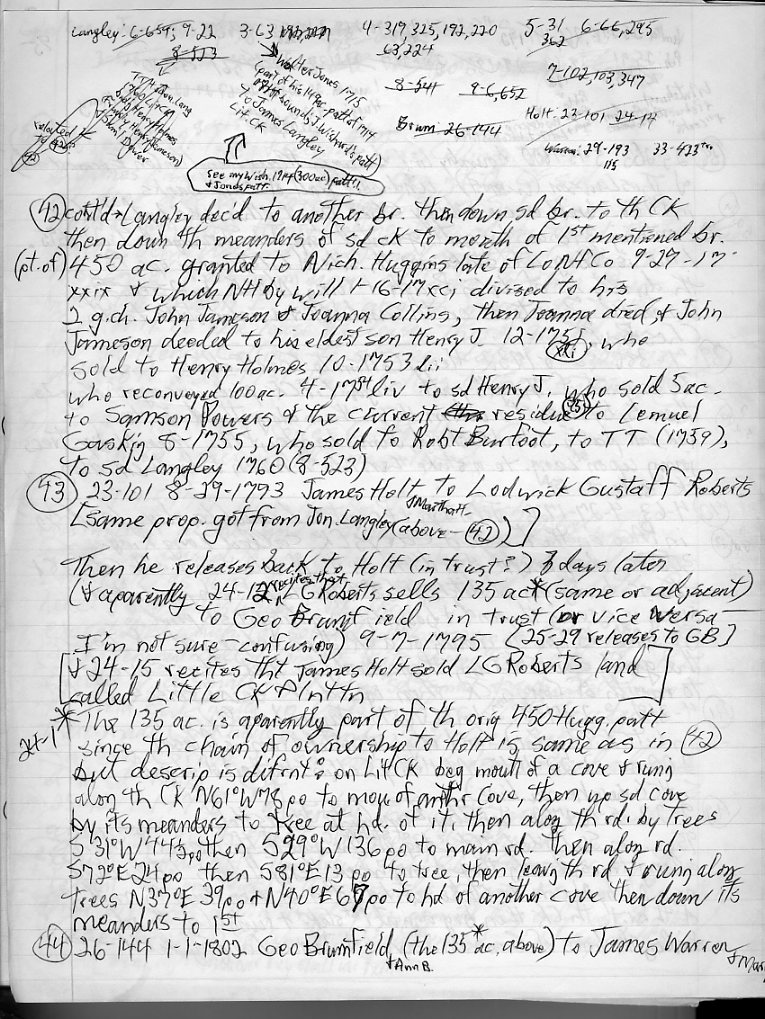 Langley: 6-659; 9-22 3-63 192,220 4-319,325,192,220 5-31 6-66,295
8-523 63,224 362
7-102,103,347
Walther Jones 1715
(part of his 1690 patt
to James Langley
Lit. CK
8-544 9-6,652
Brum: 26-144
Holt: 23-101 24-14
Warren: 29-193 33-433
115
related to 42
Henry Holmes
See my Wish. 1714 (300 ac) patt.
& Jones patt.
42 cont'd → Langley dec'd to another br. then down sd br. to th CK
then down th meanders of sd ck to mouth of 1st mentioned br.
(pt. of) 450 ac. granted to Nich. Huggins late of LoNfCo 9-27-17
xxix & which NH by will 1-16-17xxi divised to his
2 g.ch. John Jameson & Joanna Collins, then Joanna died, & John
Jameson deeded to his eldest son Henry J. 12-1751, who
sold to Henry Holmes 10-1753 lii
who reconveyed 100 ac. 4-1754 liv to sd Henry J. who sold 5 ac.
to Samson Powers & the current residue to Lemuel
Gaskin 8-1755, who sold to Robt Burfoot, to TT (1759),
to sd Langley 1760 (8-523)
43 23-101 8-29-1793 James Holt & Martha H. to Lodwick Gustaff Roberts
[same prop. got from Jon. Langley (above - 42)]
Then he releases back to Holt (in trust?) 3 days later
(& aparently 24-12 recites that LG Roberts sells 135 ac* (same or adjacent)
to Geo Brumfield in trust (or vice versa -
I'm not sure - confusing) 9-7-1795 [25-29 releases to GB]
[& 24-15 recites tht James Holt sold LG Roberts land
called Little CK Plnttn]
24-1 * The 135 ac. is aparently part of th orig 450 Hugg. patt
since th chain of ownership to Holt is same as in 42
but descrip is difrnt: on Lit CK beg mouth of a cove & runing
along th CK N61°W 78 po to mouth of anthr cove, then up sd cove
by its meanders to tree at hd. of it, then along th rd. by trees
S31°W 44½ po then S29°W 136 po to main rd. then along rd.
S72°E 24 po then S81°E 13 po to tree, then leavig th rd & runing along
trees N37°E 39 po & N40°E 67 po to hd of another cove then down its
meanders to 1st
44 26-144 1-1-1802 Geo Brumfield & Ann B. (the 135* ac. above) to James Warren & Mar